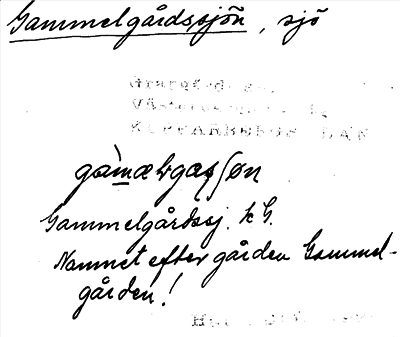 Gammelgårdssjön, sjö
KOPPARBERGS LÄN
gàmælgaʂʃøn
Gammelgårdssj. k G.
Namnet efter gården Gammel-
gården!